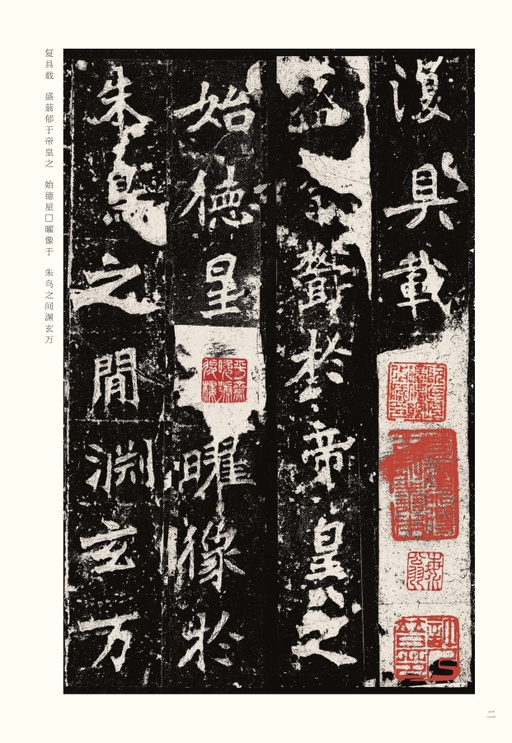 復具載
盛
欝於帝皇之
始徳星
曜像於
朱鳥之間渊玄万
复具载　盛蓊郁于帝皇之　始德星□曜像于　朱鸟之间渊玄万
二